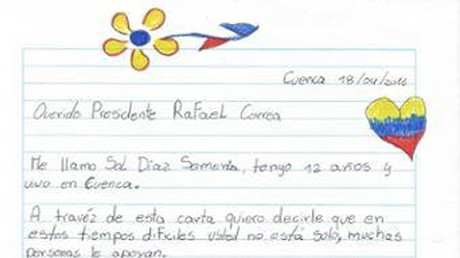 Cuenca 18/04/2016
Querido Presidente Rafael Correa
Me llamo Sol Díaz Samonta, tengo 12 años y
vivo en Cuenca.
A travéz de esta carta quiero decirle que en
estos tiempos dificiles usted no está solo, muchas
personas le apoyan.